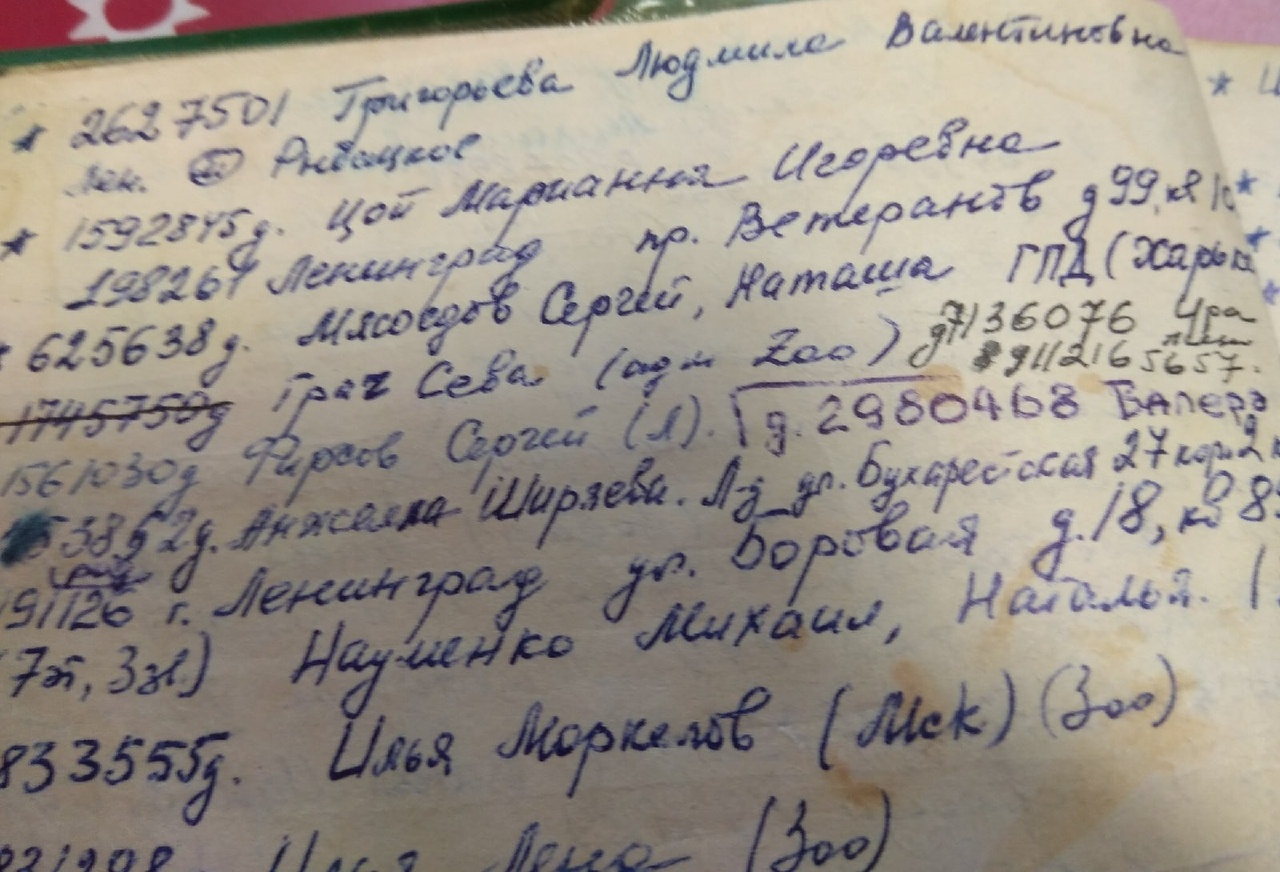 * 2627501 Григорьева Людмила Валентиновна
Лен. Рыбацкое
* 1592845д. Цой Марианна Игоревна
198261 Ленинград пр. Ветеранов д 99, кв
625638д. Мясоедов Сергей, Наташа ГПД (Харьк
1745750д Грач Сева (адм Zoo) д7136076 Ира
89112165657.
1561030д Фирсов Сергей (Л). д. 2980468 Валера
53852д. Анжелка Ширяева. Л-д ул. Бухарестская 27 корп 2
191126 г. Ленинград ул. Боровая д. 18, кв 8
(7эт, 3зв.) Науменко Михаил, Наталья. (
833555д. Илья Маркелов (Мск) (Zoo)
Лена (Zoo)